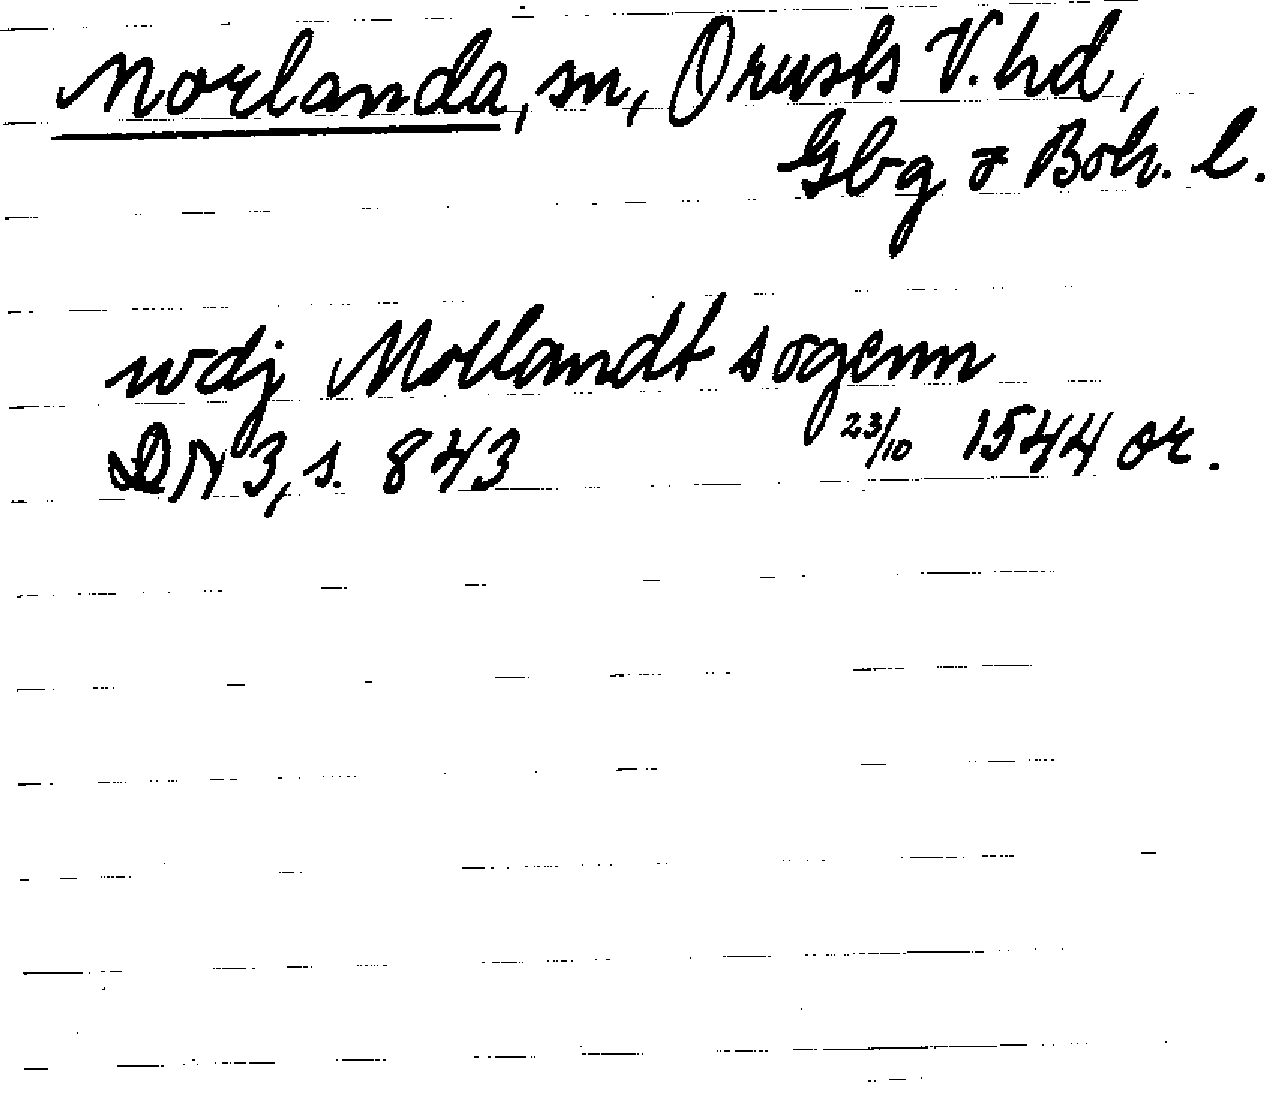 Morlanda, sn, Orusts V. hd,
Gbg o Boh. l.
wdj Mollandt sogenn
DN 3, s. 843 23/10 1544 or.